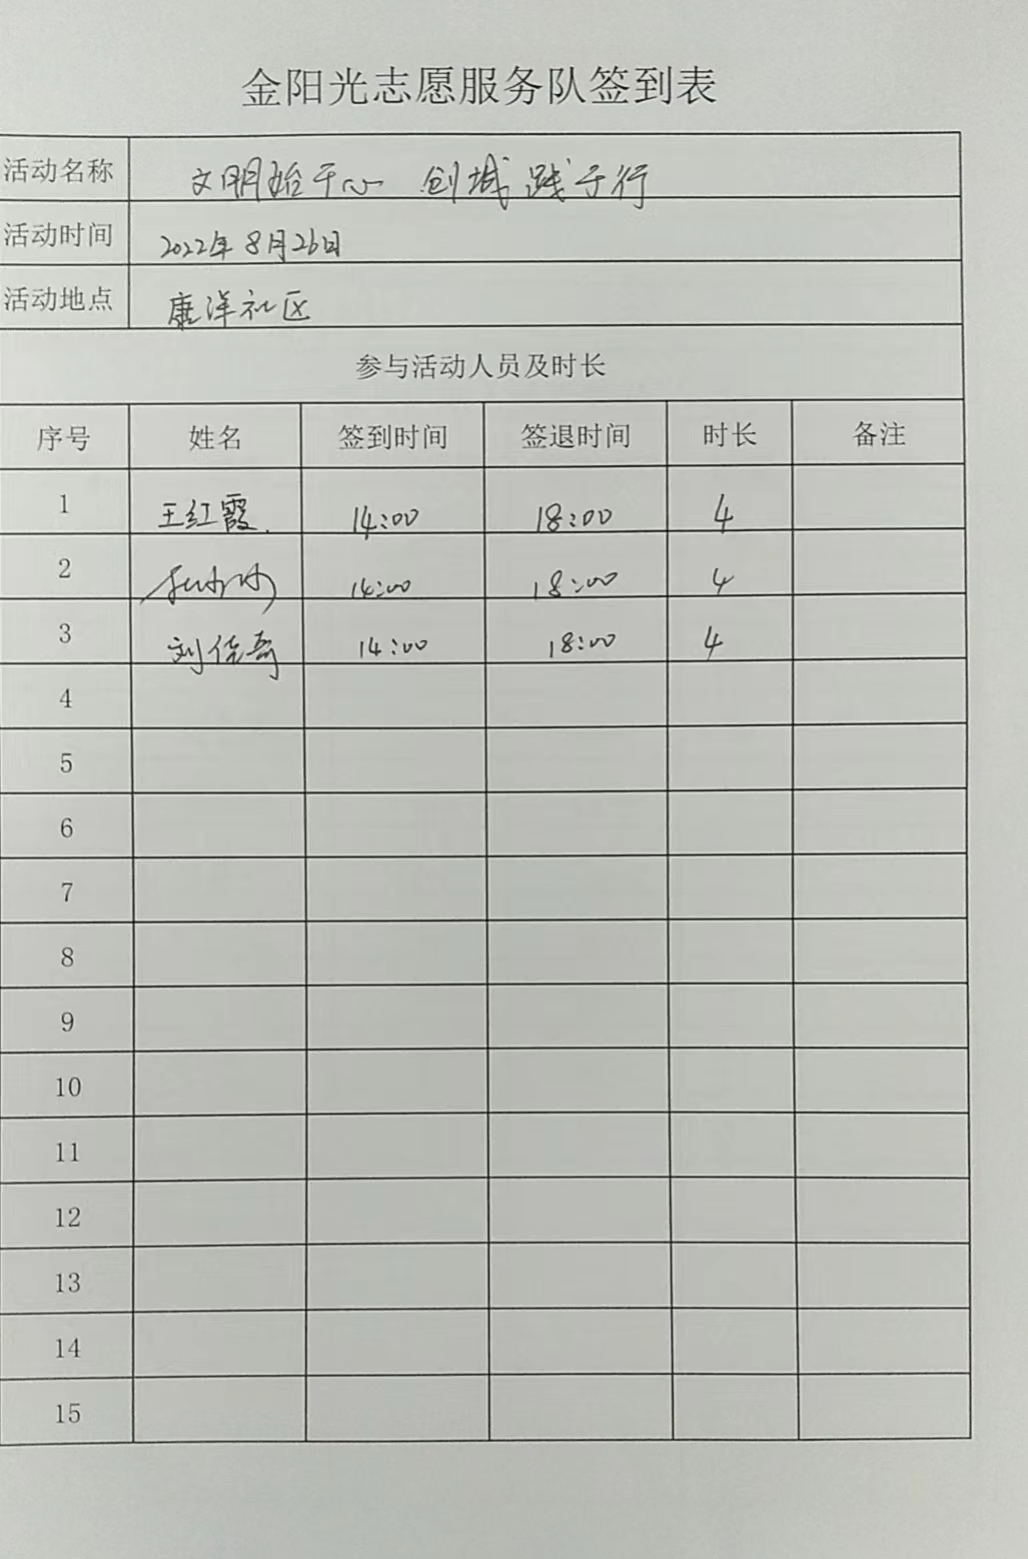 金阳光志愿服务队签到表
活动名称 文明始于心 创城践于行
活动时间 2022年8月26日
活动地点 康洋社区
参与活动人员及时长
序号 姓名 签到时间 签退时间 时长 备注
1 王红霞 14:00 18:00 4
2 14:00 18:00 4
3 刘佳奇 14:00 18:00 4
4
5
6
7
8
9
10
11
12
13
14
15